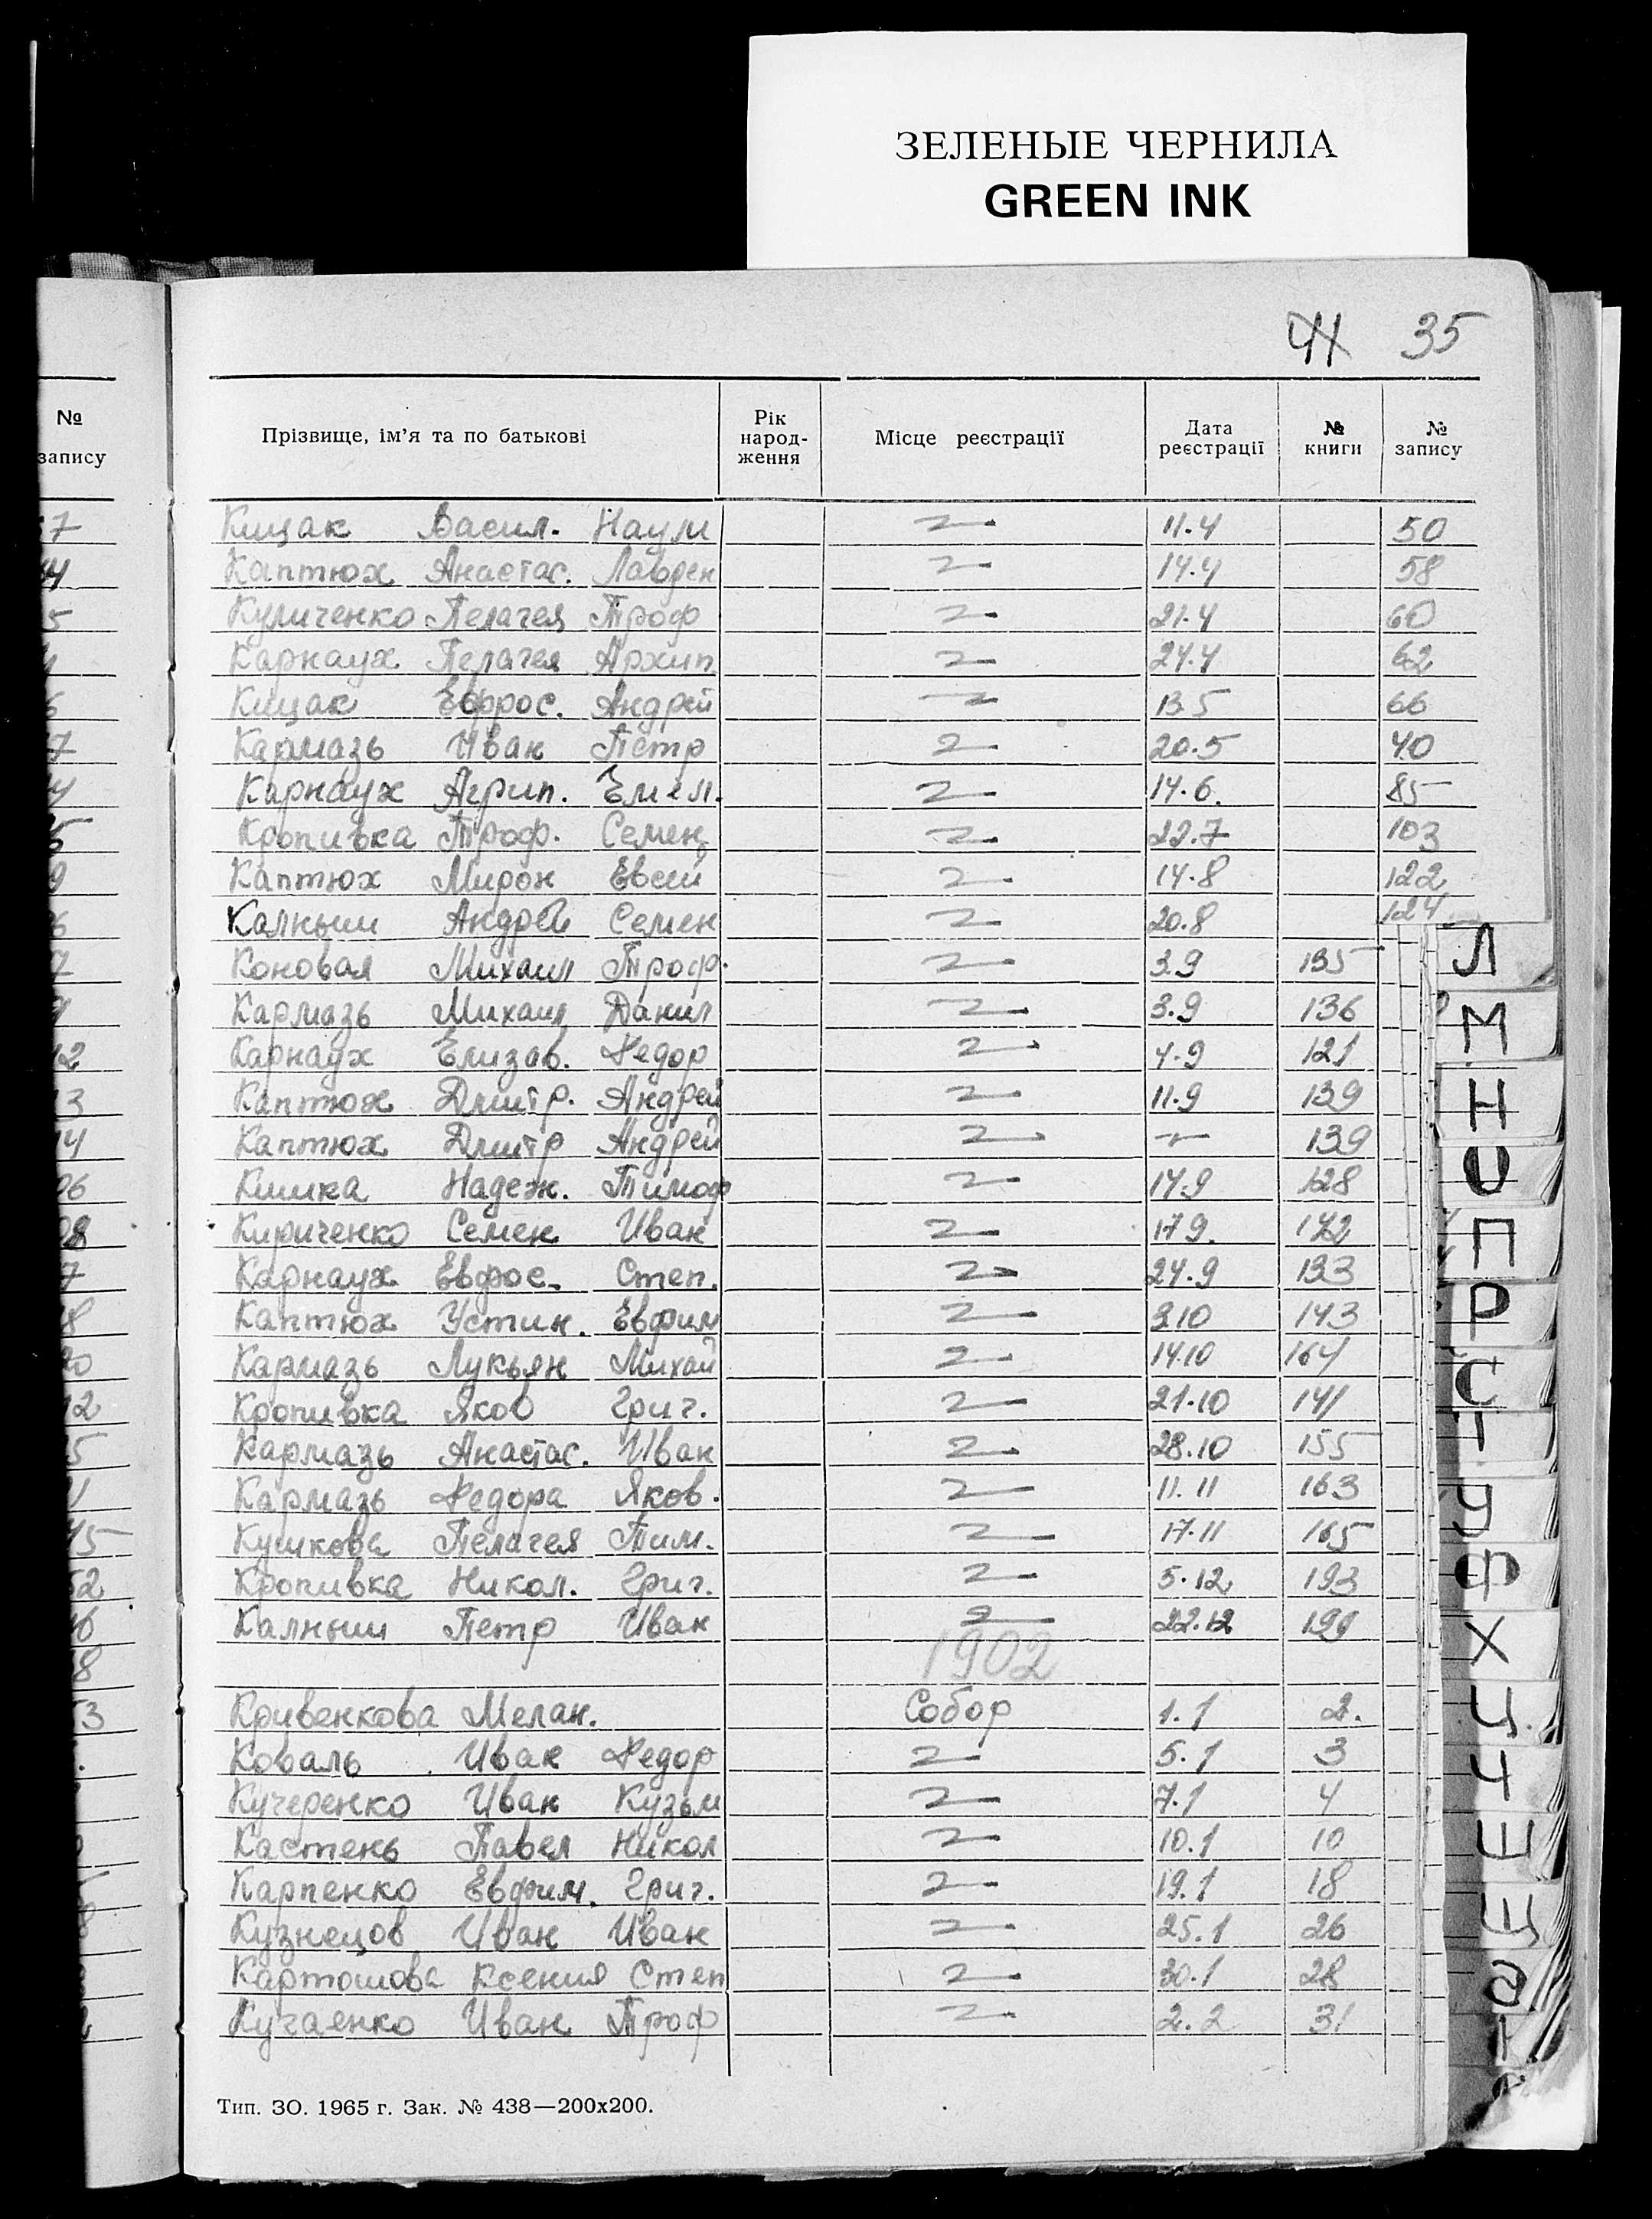 ЗЕЛЕНЫЕ ЧЕРНИЛА
GREEN INK
41 35
№ запису
Прізвище, ім'я та по батькові Рік народ-ження Місце реєстрації Дата реєстрації № книги № запису
Кищак Васил. Наум 11.4 50
Каптюх Анастас. Лаврен 14.4 58
Куличенко Пелагея Троф 21.4 60
Карнаух Пелагея Архип 24.4 62
Кищак Ефрос. Андрей 13.5 66
Кармазь Иван Петр 20.5 40
Карнаух Агрип. Емел. 14.6. 85
Кропивка Троф. Семен 22.7 103
Каптюх Мирон Евсей 14.8 122
Калныш Андрей Семен 20.8 124
Коновал Михаил Троф. 3.9 135
Кармазь Михаил Данил 3.9 136
Карнаух Елизав. Федор 4.9 121
Каптюх Дмитр. Андрей 11.9 139
Каптюх Дмитр Андрей 139
Кишка Надеж. Тимоф 14.9 128
Кириченко Семен Иван 17 9. 142
Карнаух Евфос. Степ. 24.9 133
Каптюх Устин. Евфим 3 10 143
Кармазь Лукьян Михай 14.10 164
Кропивка Яков Григ. 21.10 141
Кармазь Анастас. Иван 28.10 155
Кармазь Федора Яков. 11.11 163
Кушкова Пелагея Тим. 17.11 165
Кропивка Никол. Григ. 5.12 193
Калныш Петр Иван 22.12 199
1902
Кривенкова Мелан. Собор 1.1 2.
Коваль Иван Федор 5.1 3
Кучеренко Иван Кузьм 7.1 4
Кастень Павел Никол 10.1 10
Карпенко Евфим. Григ. 19.1 18
Кузнецов Иван Иван 25.1 26
Картошова Ксения Степ 30.1 28
Кучаенко Иван Троф 2.2 31
Тип. ЗО. 1965 г. Зак. № 438—200х200.
Л
М
Н
О
П
Р
С
Т
У
Ф
Х
Ц
Ч
Ш
Щ